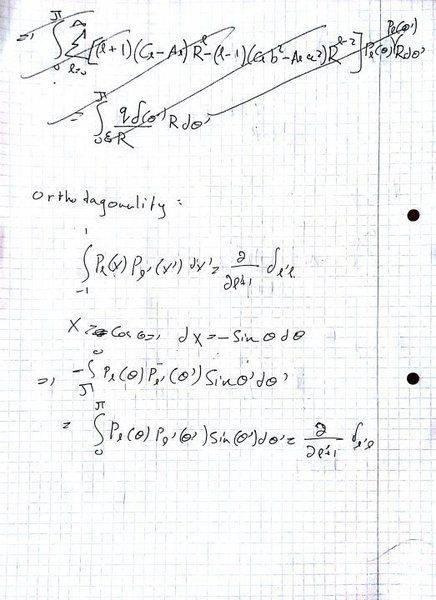 => ∫₀^π ∑_{l=0}^∞ [(l+1)(C_l - A_l)R^l - (l-1)(C_l b² - A_l a²)R^{l-2}] P_l(θ) P_l(θ') R dθ'
= ∫₀^π qδ(θ')/(εR) R dθ'
Orthodagonality:
∫_{-1}^{1} P_l(x) P_{l'}(x') dx' = 2/(2l'+1) δ_{l'l}
x = cos θ => dx = -sin θ dθ
=> -∫_π^0 P_l(θ) P_{l'}(θ') sin θ' dθ'
= ∫₀^π P_l(θ) P_{l'}(θ') sin(θ') dθ' = 2/(2l'+1) δ_{l'l}